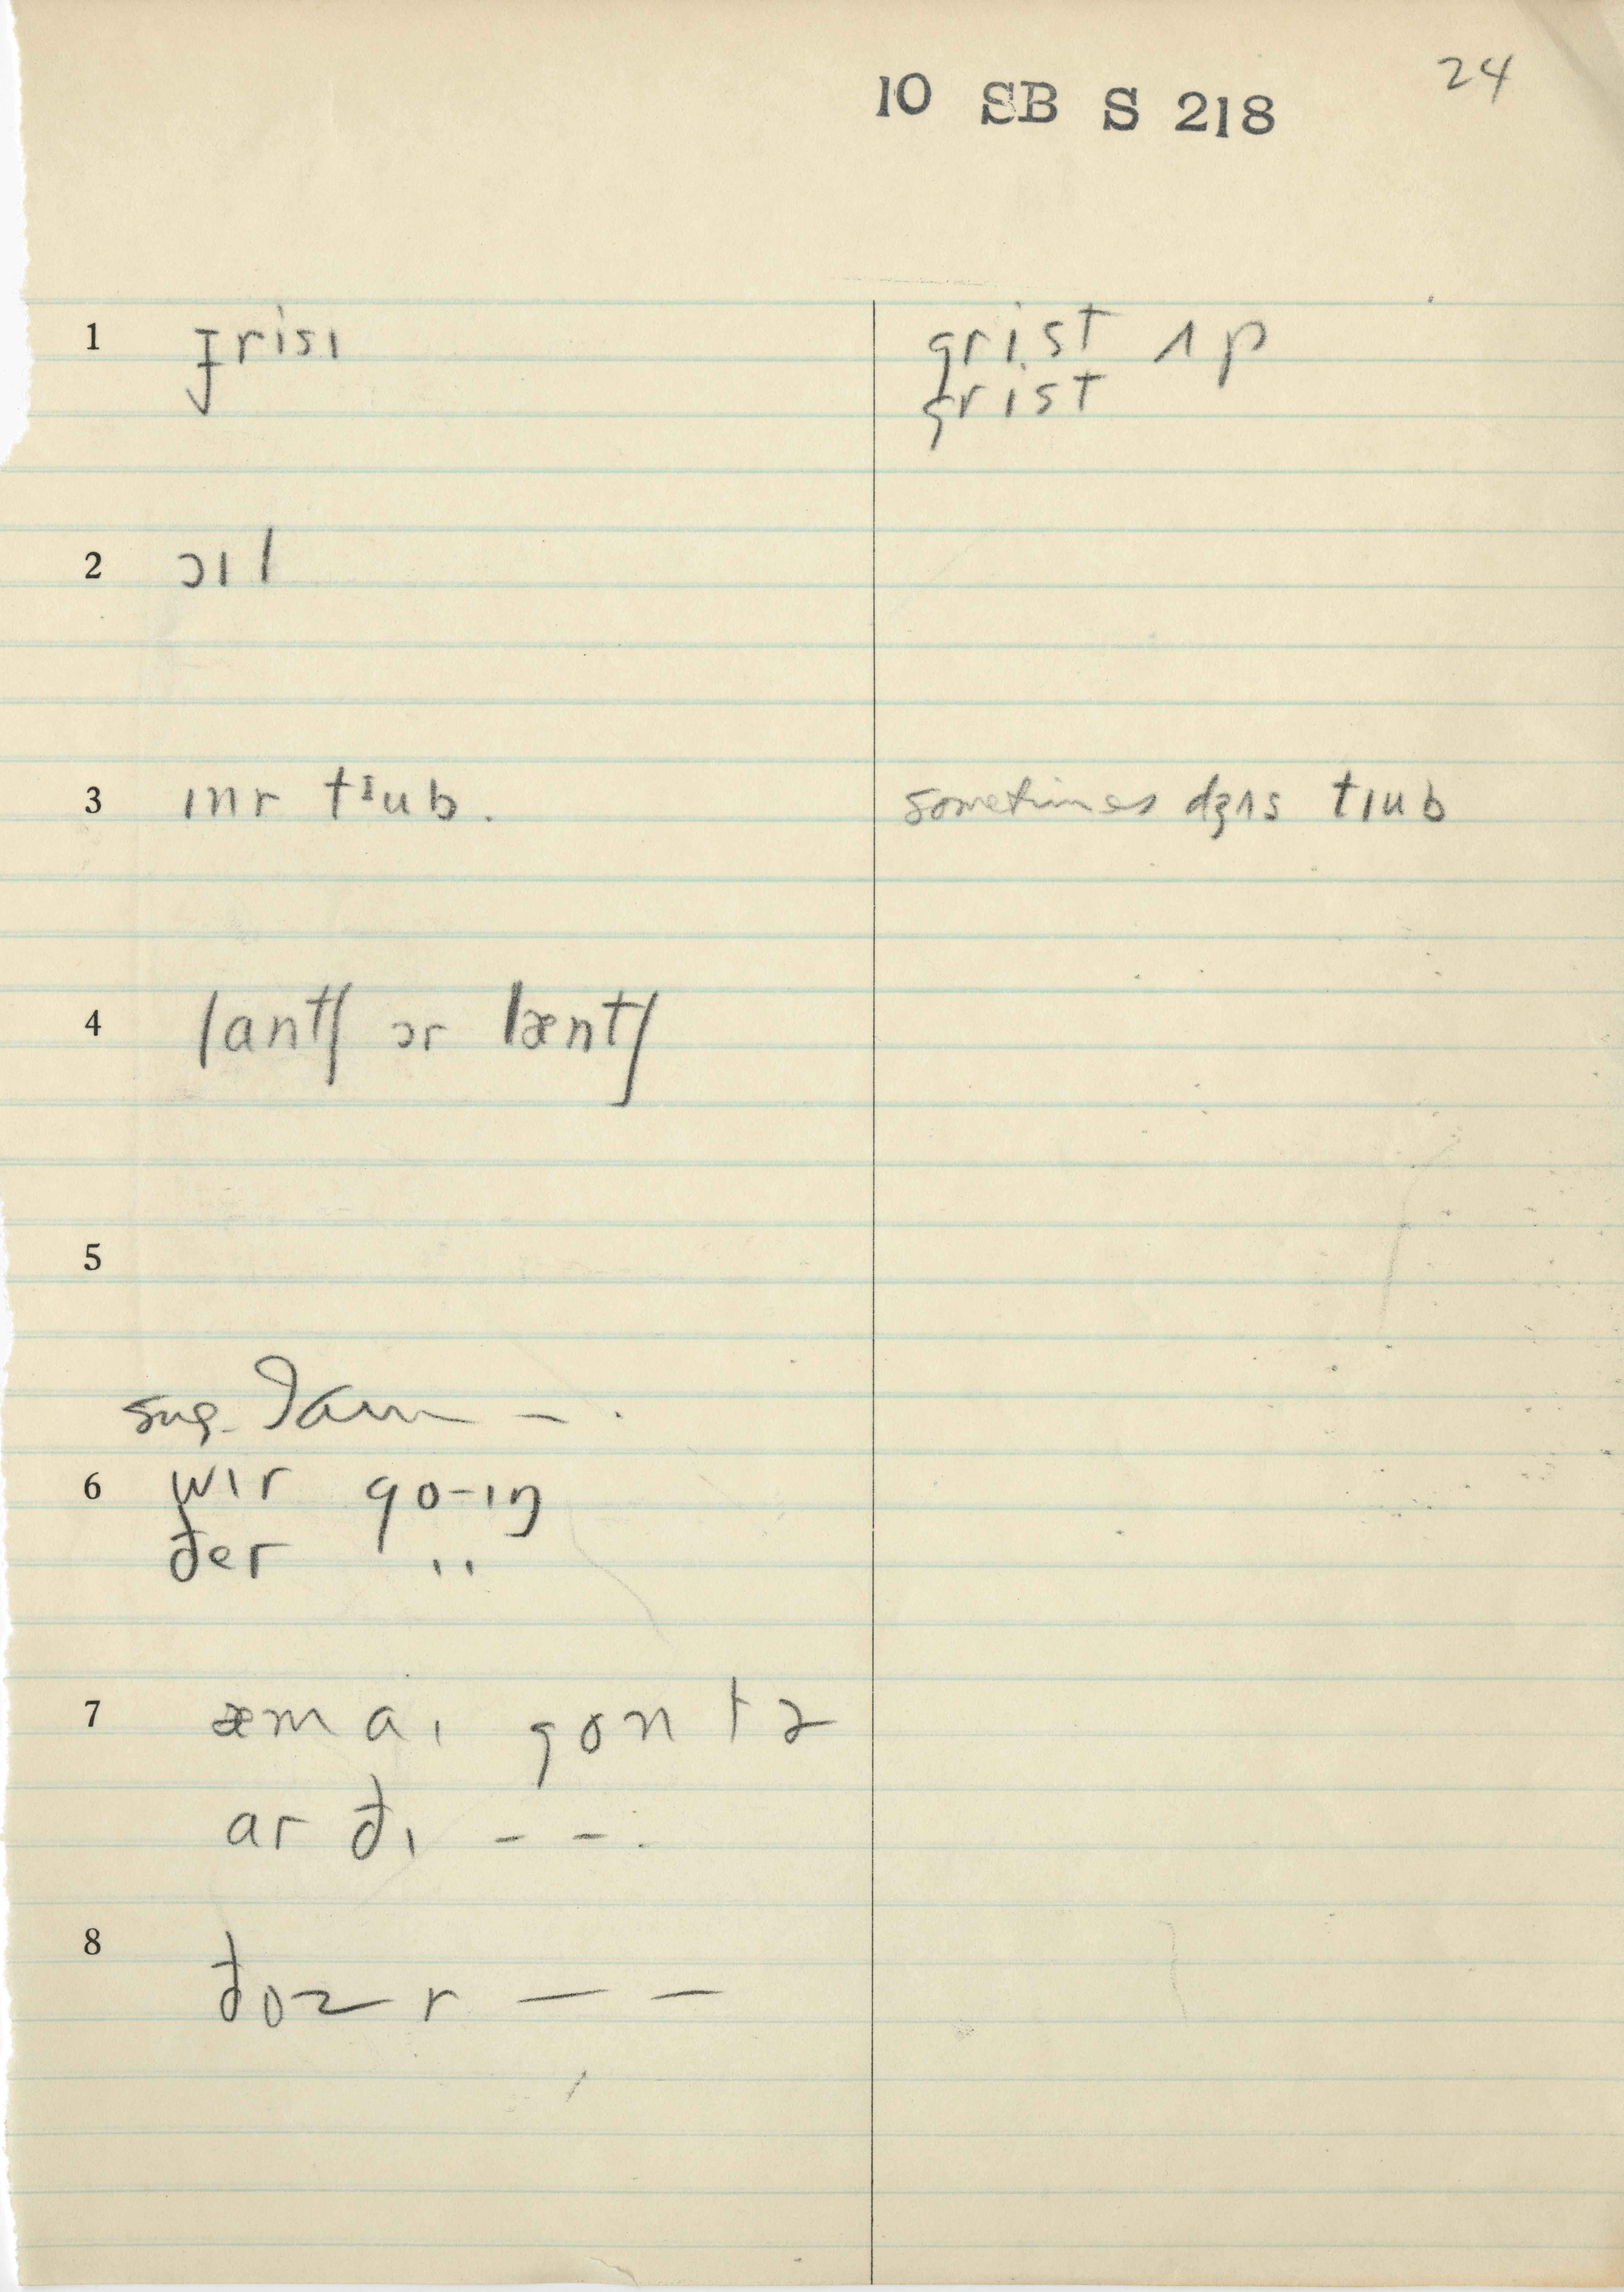 24
10 SB S 218
1 grisɪ
grist ʌp
grist
2 ɔɪl
3 ɪnr tɪub.
sometimes dʒʌs tɪub
4 lantʃ ɔr læntʃ
5
sug. I am — .
6 wɪr go-ɪŋ
ðer "
7 æm aɪ gon tə
ar ðɪ - - .
8 ðoz r — —